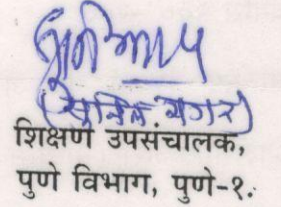 (सुनिल मगर)
शिक्षण उपसंचालक,
पुणे विभाग, पुणे-१.